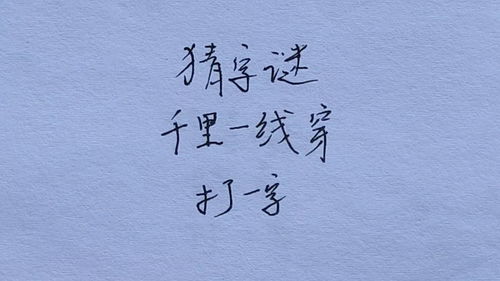 猜字谜
千里一线穿
打一字